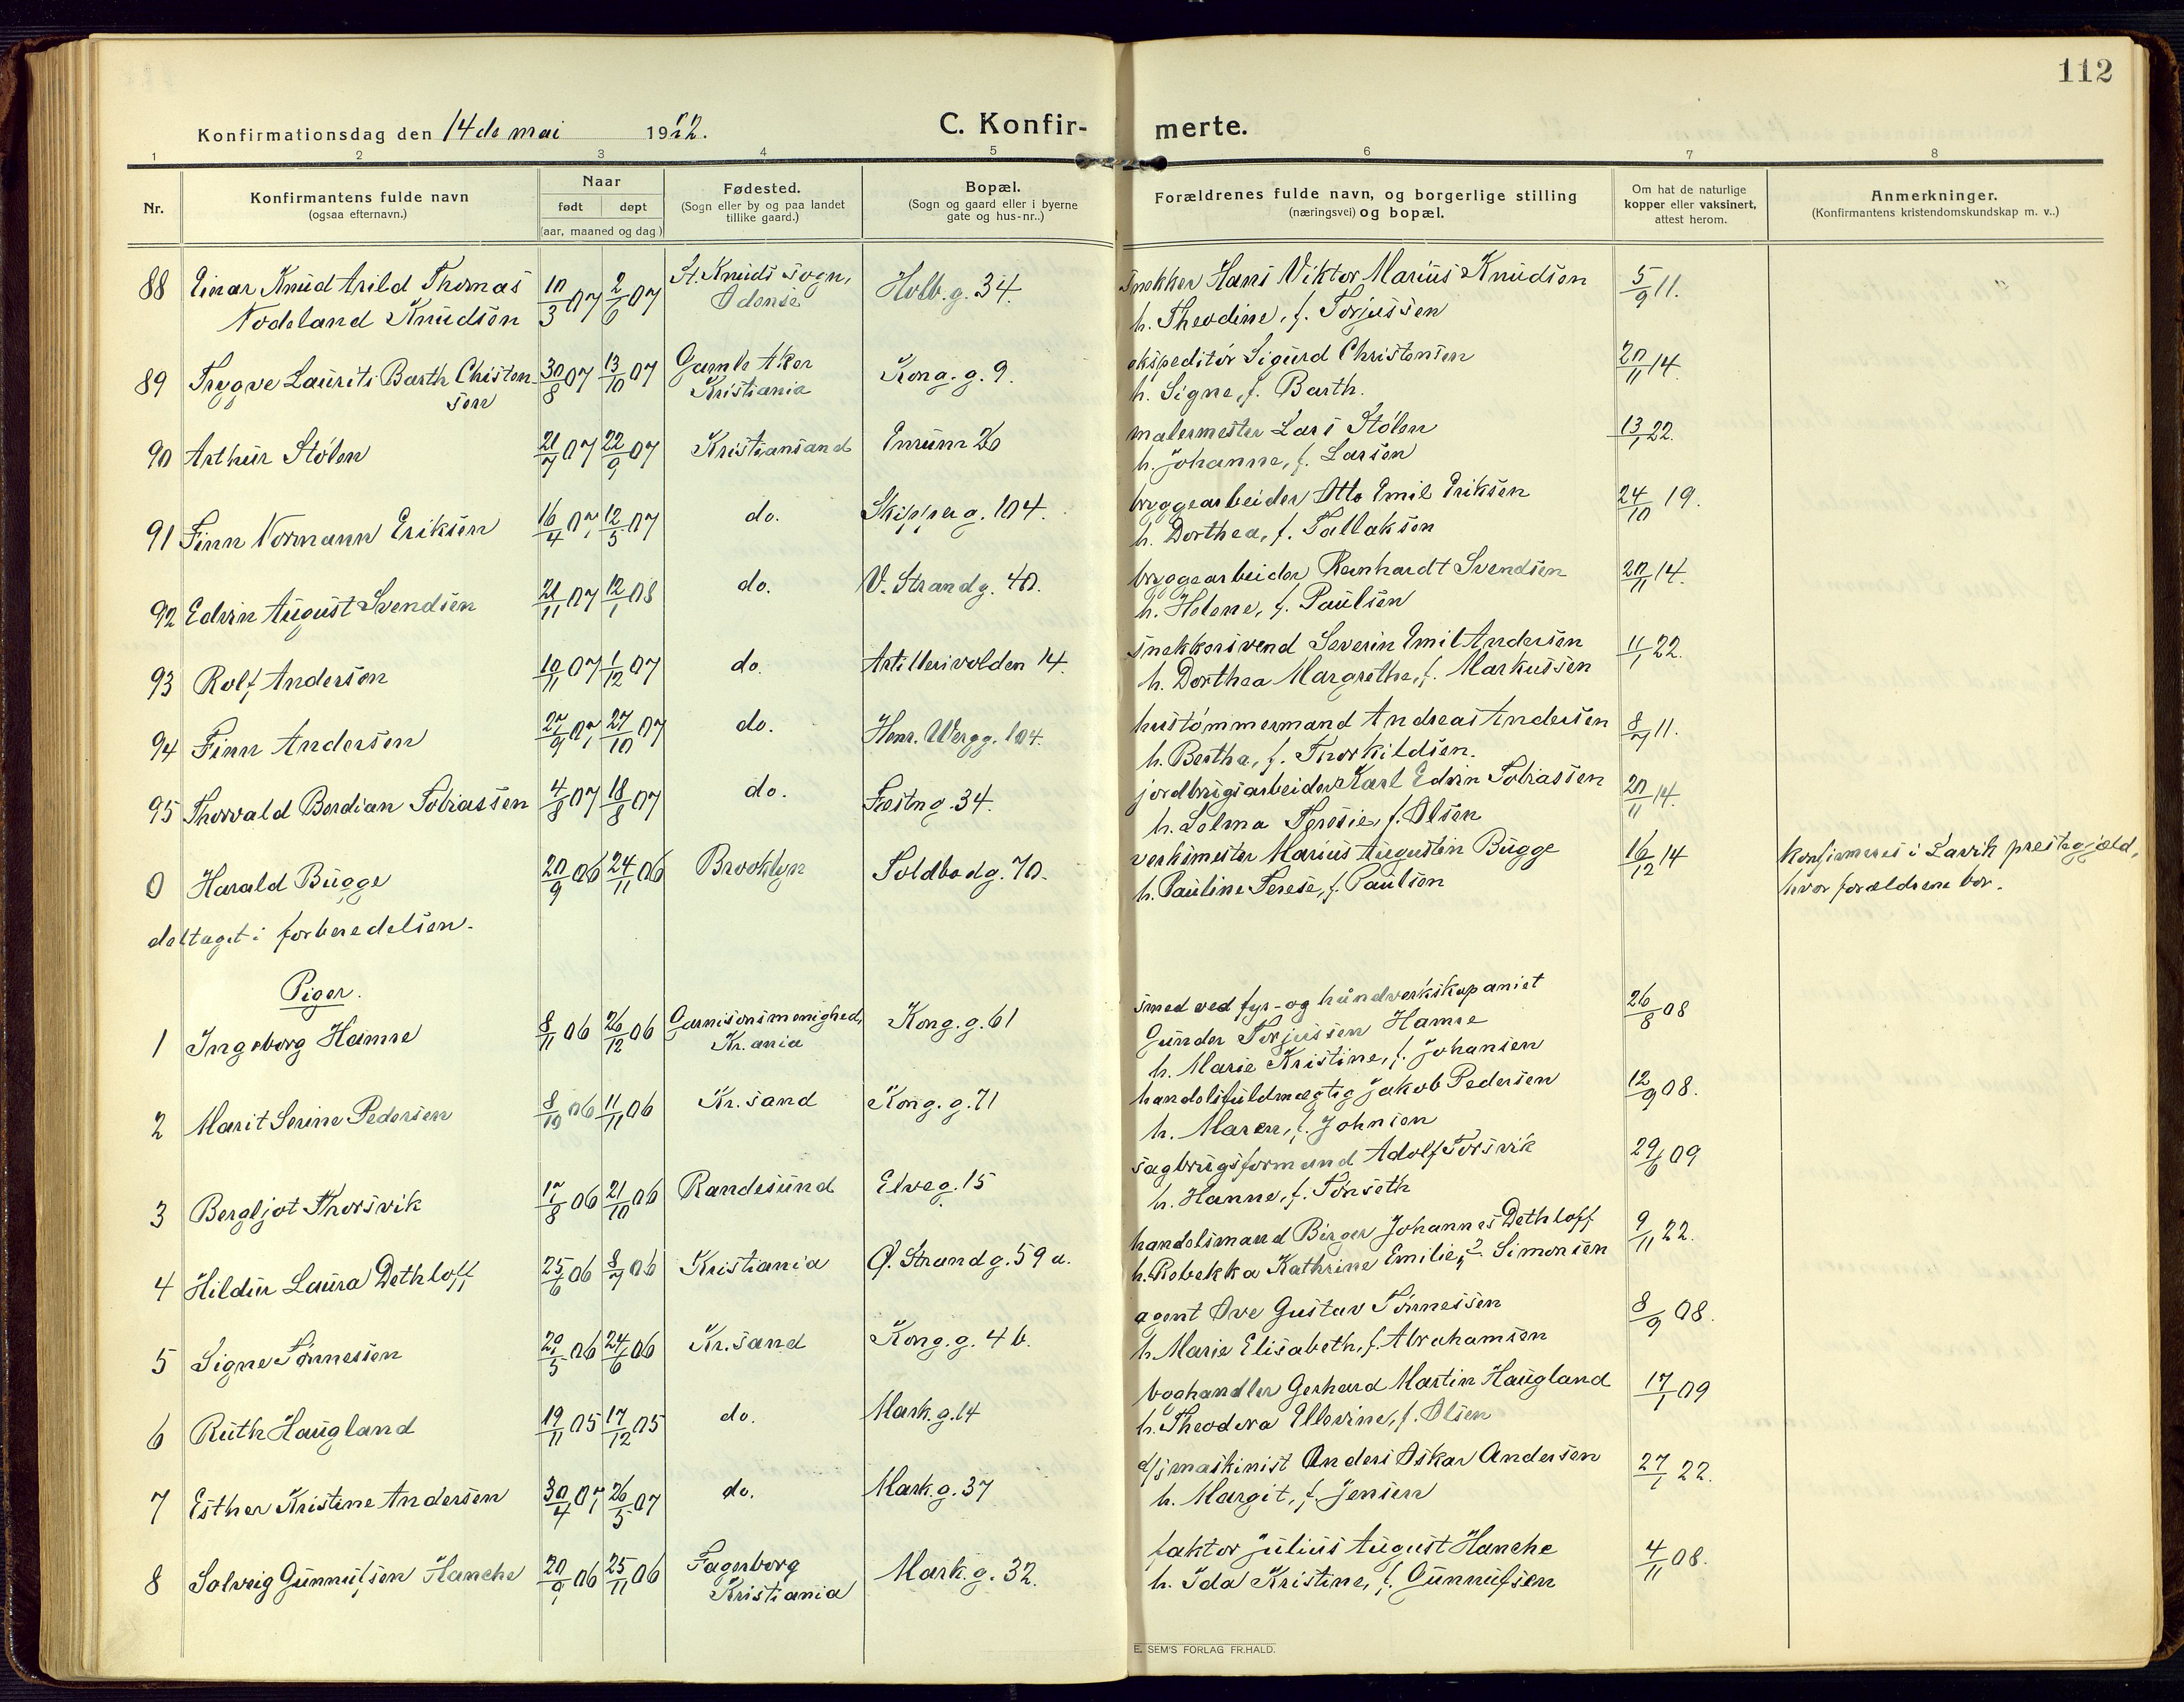 112
Konfirmationsdag den 14de mai 1922.
C. Konfirmerte.
1 2 3 4 5 6 7 8
Nr.
Konfirmantens fulde navn
(ogsaa efternavn.)
Naar
født døpt
(aar, maaned og dag)
Fødested.
(Sogn eller by og paa landet
tillike gaard.)
Bopæl.
(Sogn og gaard eller i byerne
gate og hus-nr..)
Forældrenes fulde navn, og borgerlige stilling
(næringsvei) og bopæl.
Om hat de naturlige
kopper eller vaksinert,
attest herom.
Anmerkninger.
(Konfirmantens kristendomskundskap m. v..)
88 Einar Knud Arild Thomas
Nodeland Knudsen
10/3 07 2/6 07
St. Knuds sogn,
Odense
Holb.g. 34.
snekker Hans Viktor Marius Knudsen
h. Theodine, f. Torjussen
5/9 11.
89 Trygve Laurits Barth Christen-
sen
30/8 07 13/10 07
Gamle Aker
Kristiania
Kong.g. 9.
ekspeditór Sigurd Christensen
h. Signe, f. Barth.
20/11 14.
90 Arthur Stólen
21/7 07 22/9 07
Kristiansand
Enrum 26
malermester Lars Stólen
h. Johanne, f. Larsen
13/1 22.
91 Finn Normann Eriksen
16/4 07 12/5 07
do.
Skipperg. 104.
bryggearbeider Otto Emil Eriksen
h. Dorthea, f. Tallaksen
24/10 19.
92 Edvin August Svendsen
21/11 07 12/1 08
do.
V. Strandg. 40.
bryggearbeider Reinhardt Svendsen
h. Helene, f. Paulsen
20/11 14.
93 Rolf Andersen
10/11 07 1/12 07
do.
Artillerivolden 14.
snekkersvend Severin Emil Andersen
h. Dorthea Margrethe, f. Markussen
11/1 22.
94 Finn Andersen
27/9 07 27/10 07
do.
Henr. Wergg. 104.
hustómmermand Andreas Andersen
h. Bertha, f. Thorkildsen.
8/7 11.
95 Thorvald Berdian Tobiassen
4/8 07 18/8 07
do.
Festng. 34.
jordbrugsarbeider Karl Edvin Tobiassen
h. Selma Teresie, f. Olsen
20/11 14.
0 Harald Bugge
20/9 06 24/11 06
Brooklyn
Toldbodg. 70.
verksmester Marius Augustin Bugge
h. Pauline Terese, f. Paulsen
16/12 14
konfirmeres i Larvik prestegjæld,
hvor forældrene bor.
deltaget i forberedelsen.
Piger.
1 Ingeborg Hamre
8/11 06 26/12 06
Garnisonsmenighed,
Kr.ania
Kong.g. 61
smed ved fyr- og håndverkskopaniet
Gunder Torjussen Hamre
h. Marie Kristine, f. Johansen
26/8 08
2 Marit Serine Pedersen
8/10 06 11/11 06
Kr.sand
Kong.g. 71
handelsfuldmægtig Jakob Pedersen
h. Maren, f. Johnsen
12/9 08.
3 Bergljot Thorsvik
17/8 06 21/10 06
Randesund
Elveg. 15
sagbrugsformand Adolf Torsvik
h. Hanne, f. Tónseth
29/6 09
4 Hildur Laura Dethloff
25/6 06 8/7 06
Kristiania
Ø. Strandg. 59 a.
handelsmand Birger Johannes Dethloff
h. Rebekka Kathrine Emilie, f. Simonsen
9/11 22.
5 Signe Tónnessen
20/5 06 24/6 06
Kr.sand
Kong.g. 4 b.
agent Ove Gustav Tónnessen
h. Marie Elisabeth, f. Abrahamsen
8/9 08.
6 Ruth Haugland
19/11 05 17/12 05
do.
Mark.g. 14
boghandler Gerhard Martin Haugland
h. Theodora Ellevine, f. Olsen
17/1 09
7 Esther Kristine Andersen
30/4 07 26/5 07
do.
Mark.g. 37
d/s maskinist Anders Oskar Andersen
h. Margit, f. Jensen
27/1 22.
8 Solveig Gunnulfsen Hanche
20/9 06 25/11 06
Fagerborg
Kristiania
Mark.g. 32.
faktor Julius August Hanche
h. Ida Kristine, f. Gunnulfsen
4/11 08.
E. SEM'S FORLAG FR.HALD.